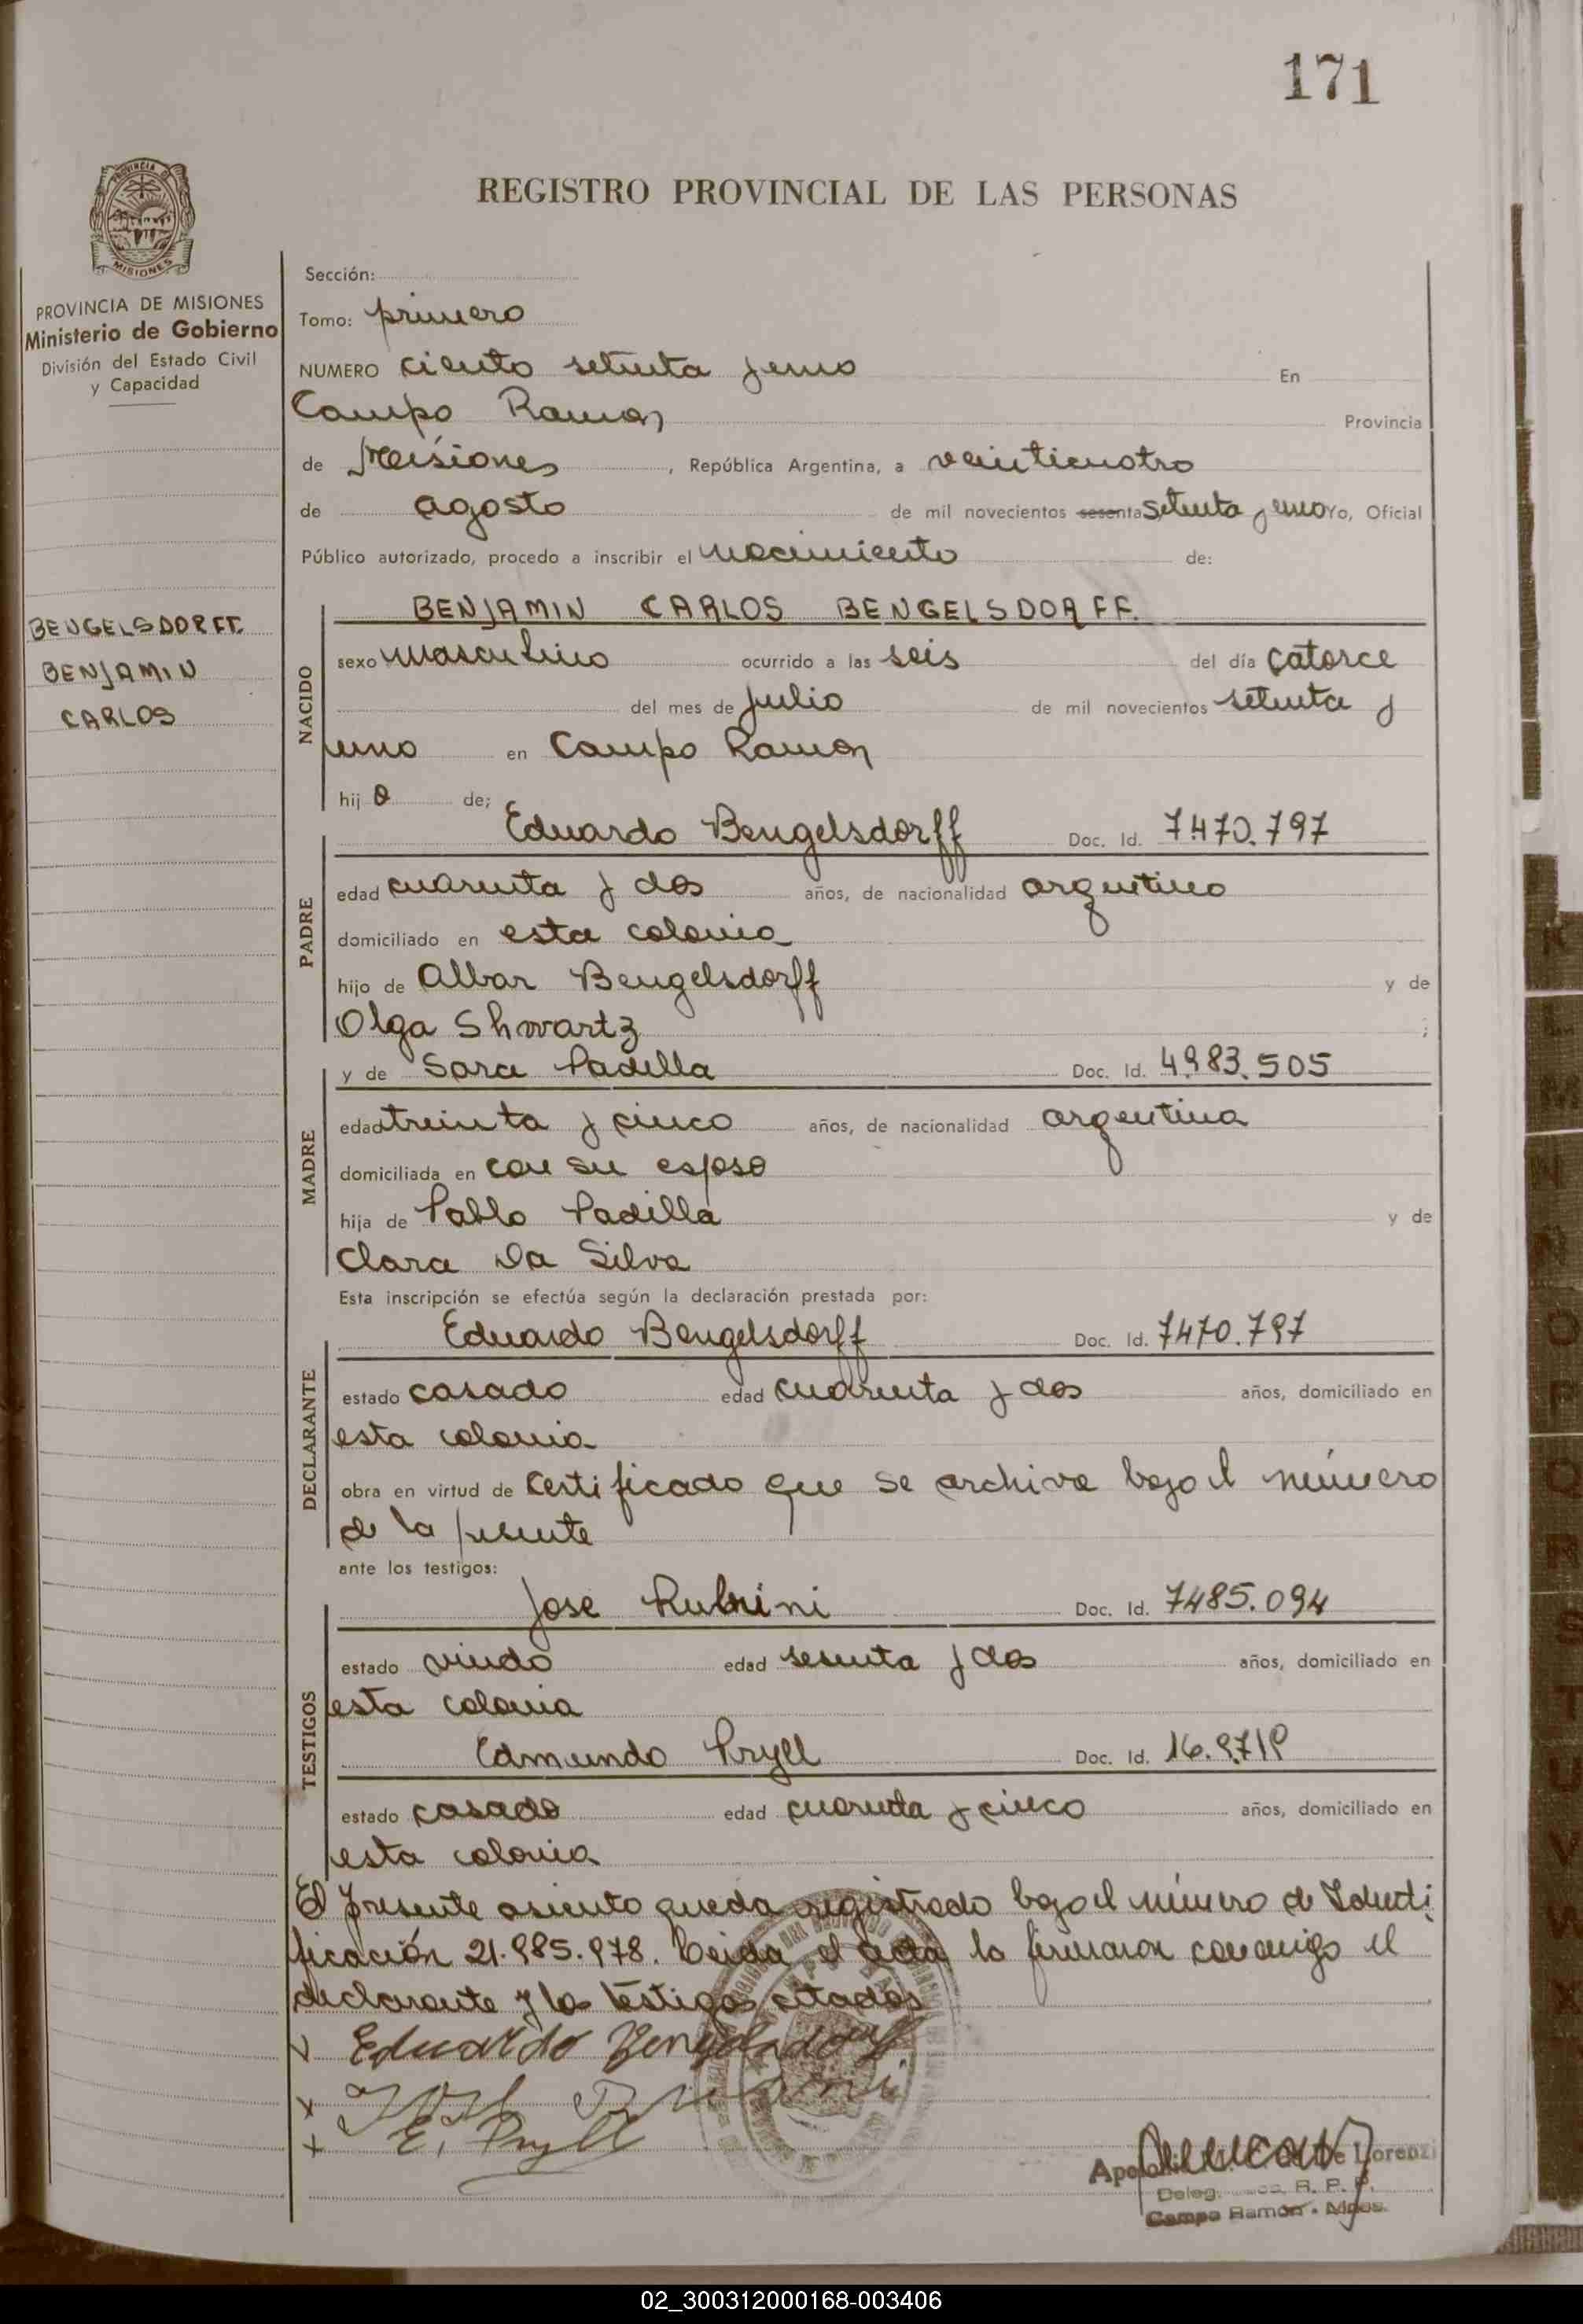 171
REGISTRO PROVINCIAL DE LAS PERSONAS
PROVINCIA DE MISIONES
Ministerio de Gobierno
División del Estado Civil
y Capacidad
Sección:
Tomo: primero
NUMERO ciento setenta y uno En
Campo Ramon Provincia
de Misiones, República Argentina, a veinticuatro
de agosto de mil novecientos sesenta setenta y uno Yo, Oficial
Público autorizado, procedo a inscribir el nacimiento de:
BENGELSDORFF.
BENJAMIN
CARLOS
NACIDO
BENJAMIN CARLOS BENGELSDORFF.
sexo masculino ocurrido a las seis del día catorce
del mes de Julio de mil novecientos setenta y
uno en Campo Ramon
hijo de;
PADRE
Eduardo Bengelsdorff Doc. Id. 7470.797
edad cuarenta y dos años, de nacionalidad argentino
domiciliado en esta colonia
hijo de Albar Bengelsdorff y de
Olga Shwartz ;
MADRE
y de Sara Padilla Doc. Id. 4.983.505
edad treinta y cinco años, de nacionalidad argentina
domiciliada en con su esposo
hija de Pablo Padilla y de
Clara Da Silva
Esta inscripción se efectúa según la declaración prestada por:
DECLARANTE
Eduardo Bengelsdorff Doc. Id. 7470.797
estado casado edad cuarenta y dos años, domiciliado en
esta colonia
obra en virtud de certificado que se archiva bajo el número
de la presente
ante los testigos:
TESTIGOS
Jose Rubini Doc. Id. 7485.094
estado viudo edad sesenta y dos años, domiciliado en
esta colonia
Edmundo Pryll Doc. Id.
estado casado edad cuarenta y cinco años, domiciliado en
esta colonia
El presente asiento queda registrado bajo el número de Identi
ficación 21.985.978. Leida el acta la firmaron conmigo el
declarante y los testigos citados
Eduardo Bengelsdorff
E. Pryll
de Lorenzi
Deleg. R. P. P.
Campo Ramón - Mnes.
02_300312000168-003406